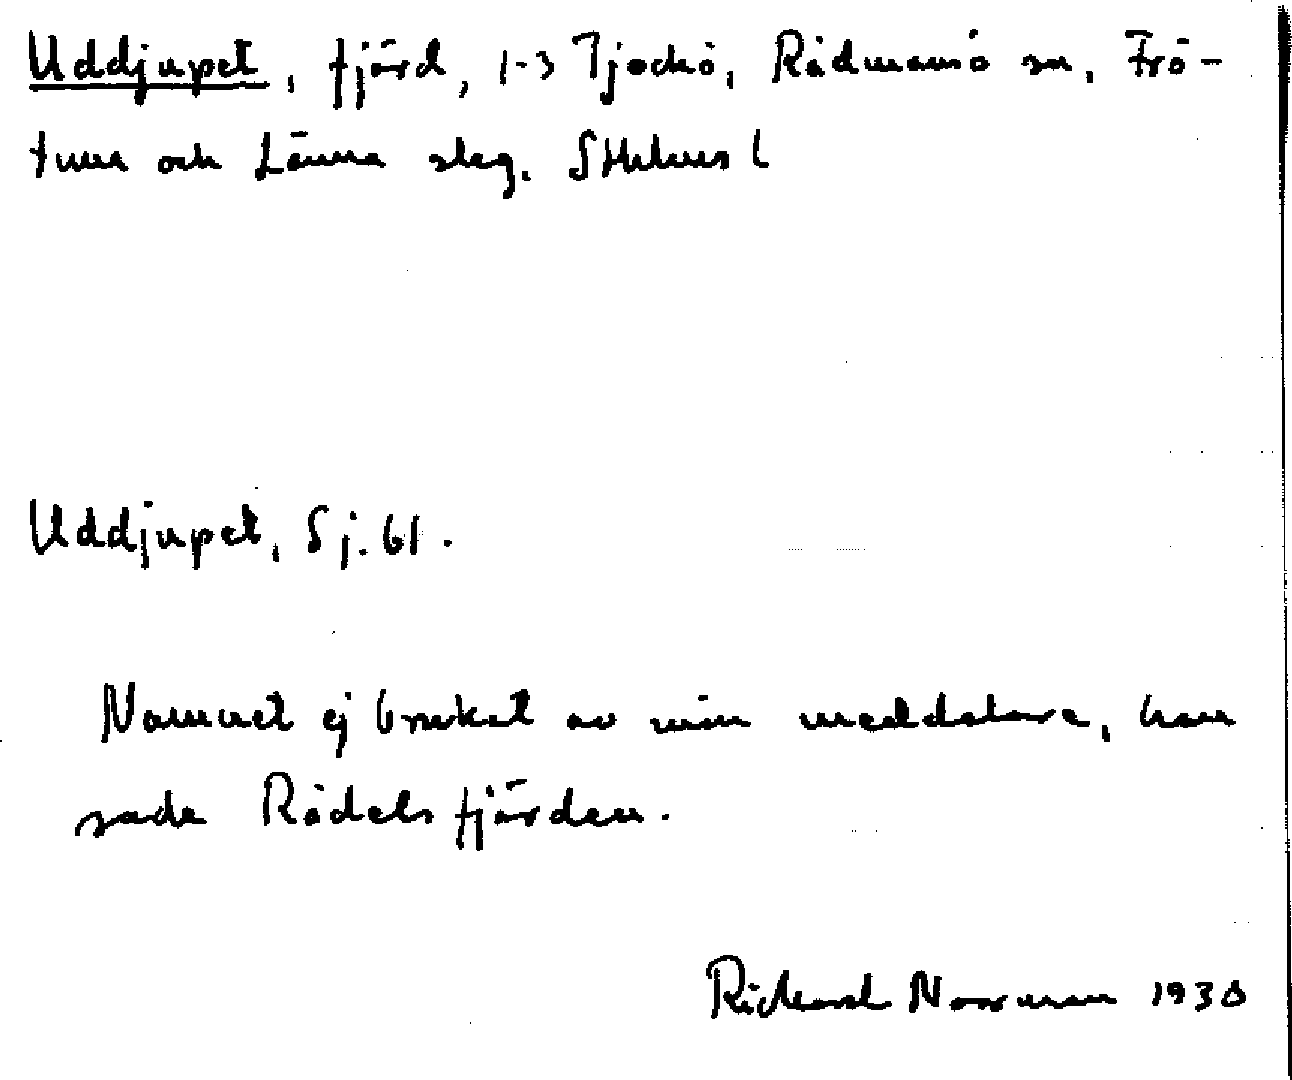 Uddjupet, fjärd, 1-3 Tjockö, Rådmansö sn, Frö-
tuna och Länna skeg. Sthlms l
Uddjupet, Sj. 61.
Namnet ej brukat av min meddelare, han
sade Rådelsfjärden.
Rickard Norrman 1930